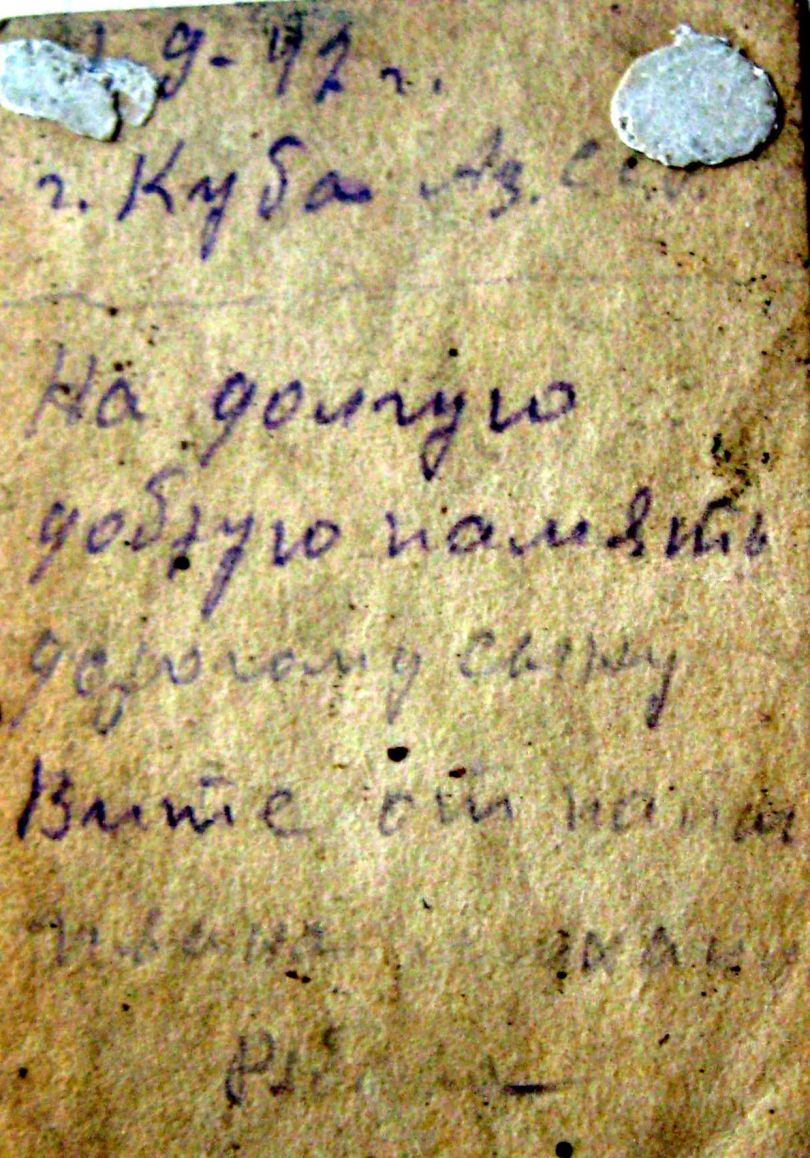 9-42 г.
г. Куба Аз. ССР
На долгую
добрую память
дорогому сыну
Вите от папы